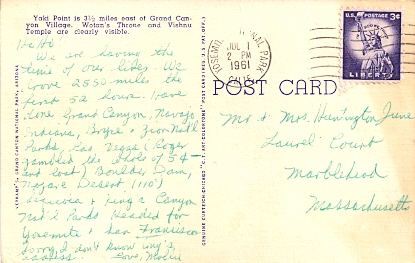 Yaki Point is 3½ miles east of Grand Can-
yon Village. Wotan's Throne and Vishnu
Temple are clearly visible.
Hi Hi!
We are having the
time of our lives. We
wove 2550 miles the
first 52 hours. Have
done Grand Canyon, Navajo
Indians, Bryce & Zion Nat'l
Parks, Las Vegas (Roger
gambled the whole of 5¢ –
and lost) Boulder Dam,
Mojave Desert (110°)
Sequoia & Kings Canyon
Nat'l Parks. Headed for
Yosemite & San Francisco
Sorry, I don't know
address. Love, Mollie
GRAND CANYON NATIONAL PARK, ARIZONA
YOSEMITE NATIONAL PARK
JUL 1
2 PM
1961
CALIF.
U.S. POSTAGE 3¢
LIBERTY
POST CARD
Mr & Mrs. Huntington
Laurel Court
Marblehead
Massachusetts